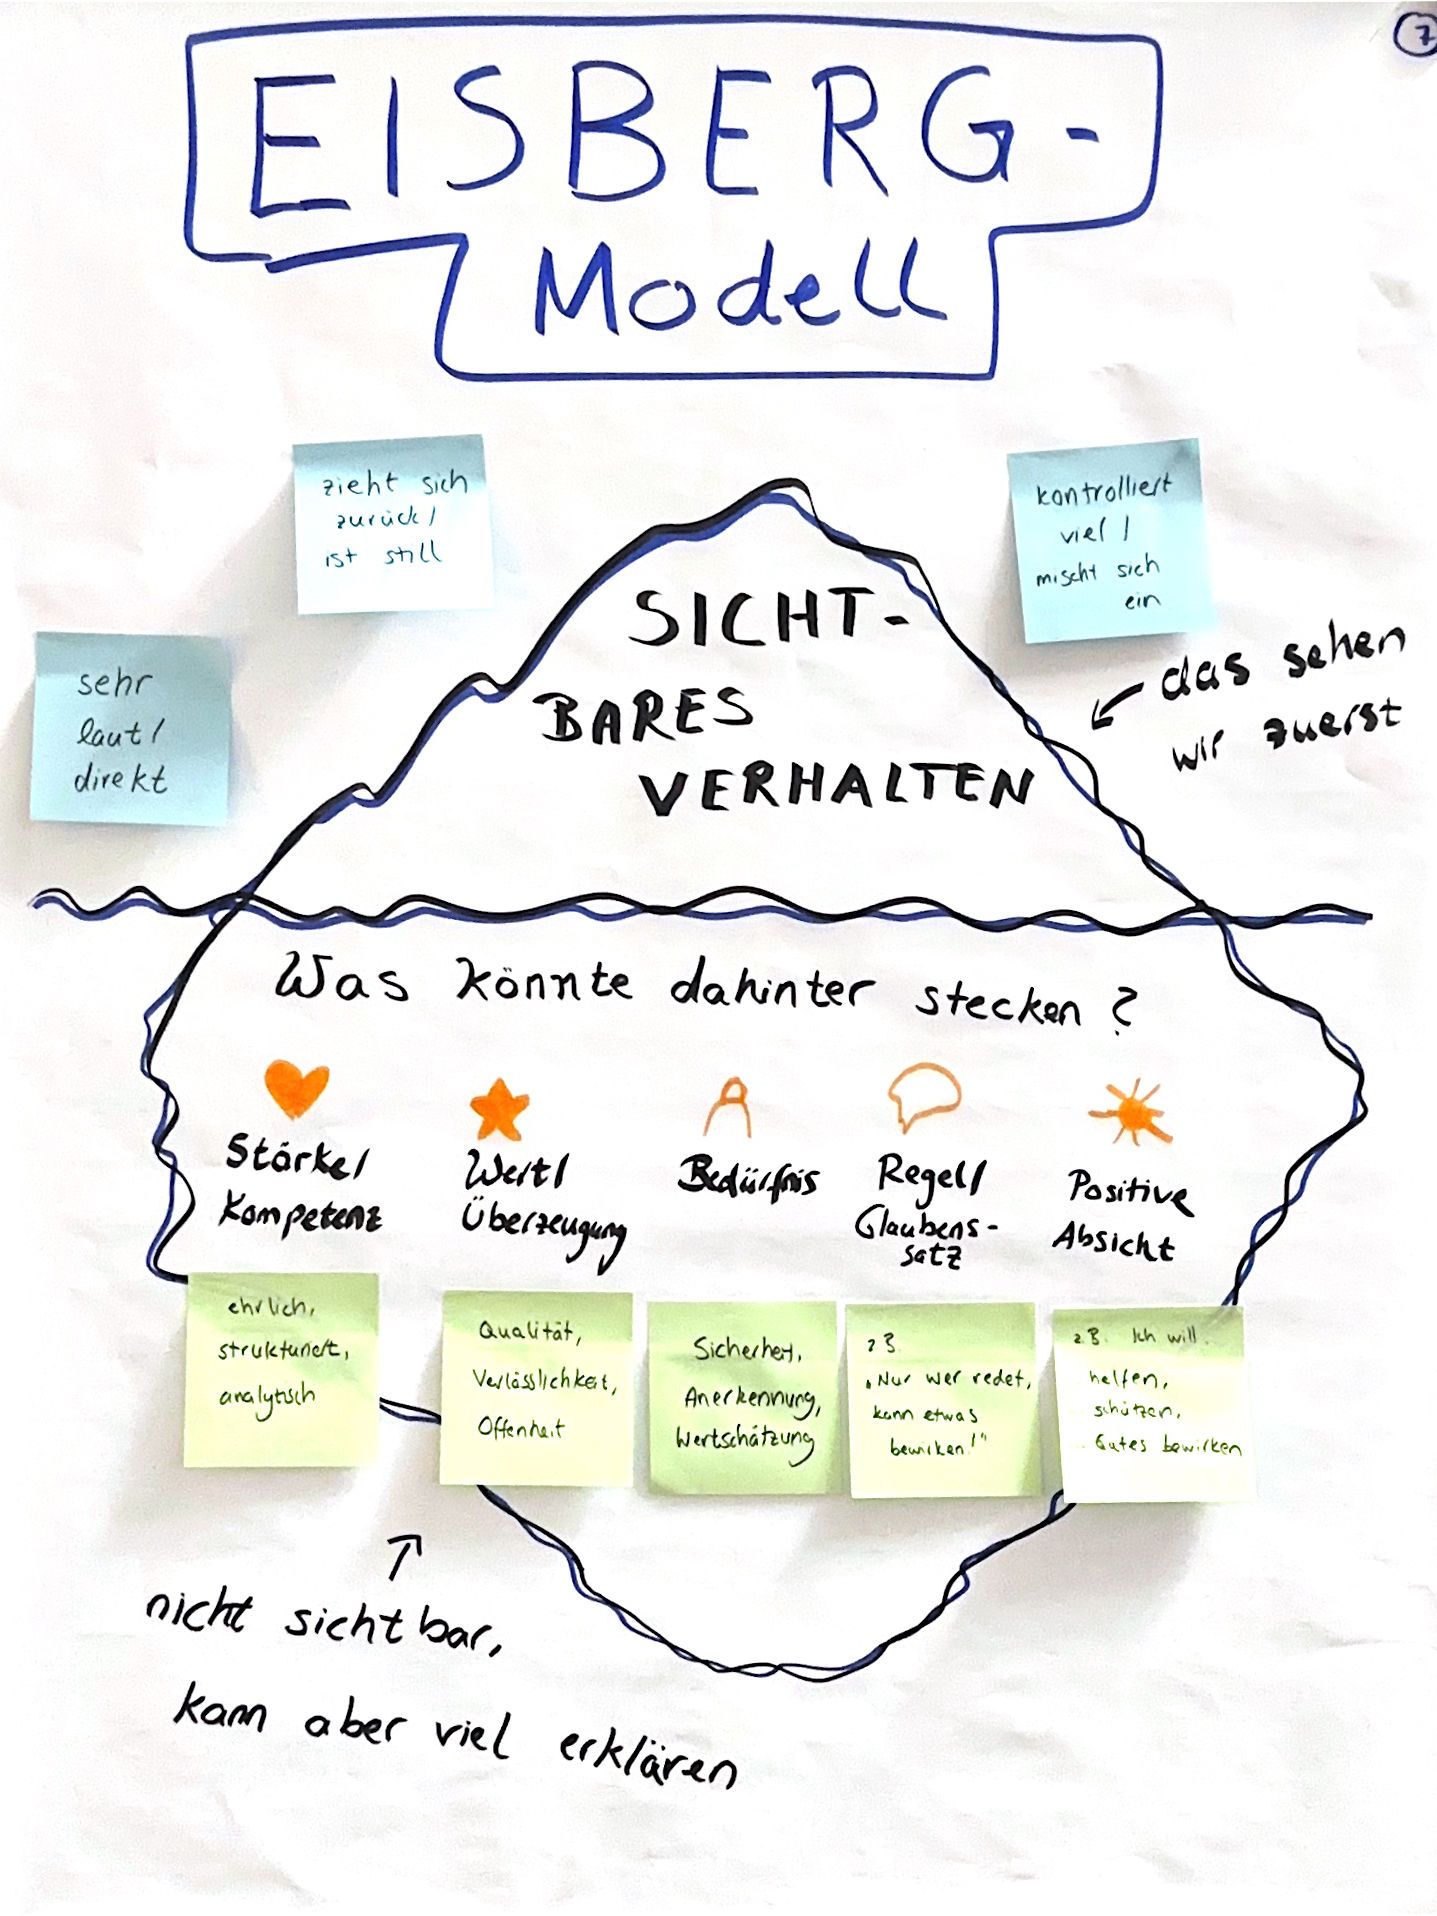 7
EISBERG-
Modell
zieht sich
zurück/
ist still
kontrolliert
viel /
mischt sich
ein
sehr
laut/
direkt
SICHT-
BARES
VERHALTEN
das sehen
wir zuerst
Was könnte dahinter stecken?
Stärke/
Kompetenz
Wert/
Überzeugung
Bedürfnis
Regel/
Glaubens-
satz
Positive
Absicht
ehrlich,
strukturiert,
analytisch
Qualität,
Verlässlichkeit,
Offenheit
Sicherheit,
Anerkennung,
Wertschätzung
z.B.
„Nur wer redet,
kann etwas
bewirken!“
z.B. Ich will
helfen,
schützen,
Gutes bewirken
nicht sichtbar,
kann aber viel erklären